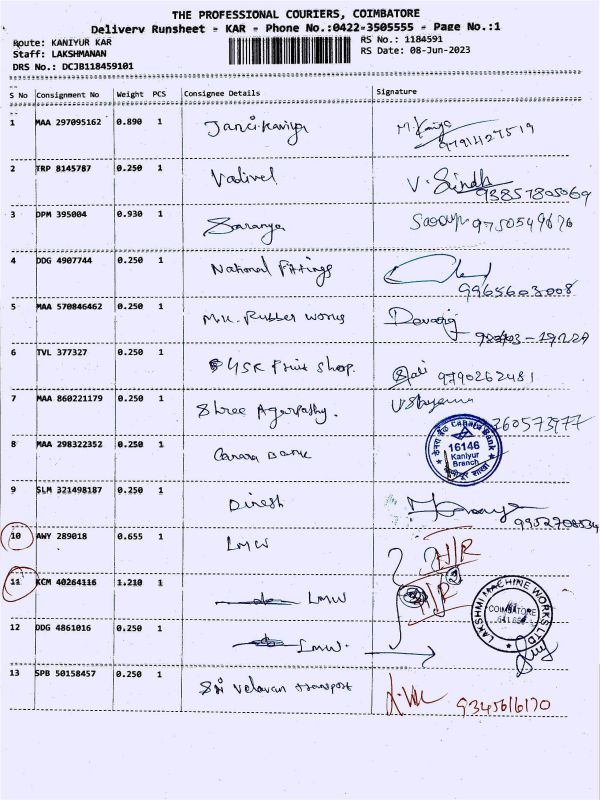 THE PROFESSIONAL COURIERS, COIMBATORE
Delivery Runsheet - KAR - Phone No.:0422-3505555 - Page No.:1
Route: KANIYUR KAR
RS No.: 1184591
Staff: LAKSHMANAN
RS Date: 08-Jun-2023
DRS No.: DCJB118459101
S No Consignment No Weight PCS Consignee Details Signature
1 MAA 297095162 0.890 1 Jancikaviya 9791427519
2 TRP 8145787 0.250 1 Vadivel V. 93857805069
3 DPM 395004 0.930 1 Saranya 9750549676
4 DDG 4907744 0.250 1 National Fittings 9965603008
5 MAA 570846462 0.250 1 M.K. Rubber works Devaraj
6 TVL 377327 0.250 1 YSK Print Shop. 9790262481
7 MAA 860221179 0.250 1 Shree Agarpathy. 360573977
8 MAA 298322352 0.250 1 Canara Bank
केनरा बैंक CANARA BANK
16146
Kaniyur
Branch
9 SLM 321498187 0.250 1 Dinesh 9952708534
10 AWY 289018 0.655 1 LMW
11 KCM 40264116 1.210 1 LMW
LAKSHMI MACHINE WORKS LTD
COIMBATORE
12 DDG 4861016 0.250 1 LMW.
13 SPB 50158457 0.250 1 Sri Velavan transport 9345616170